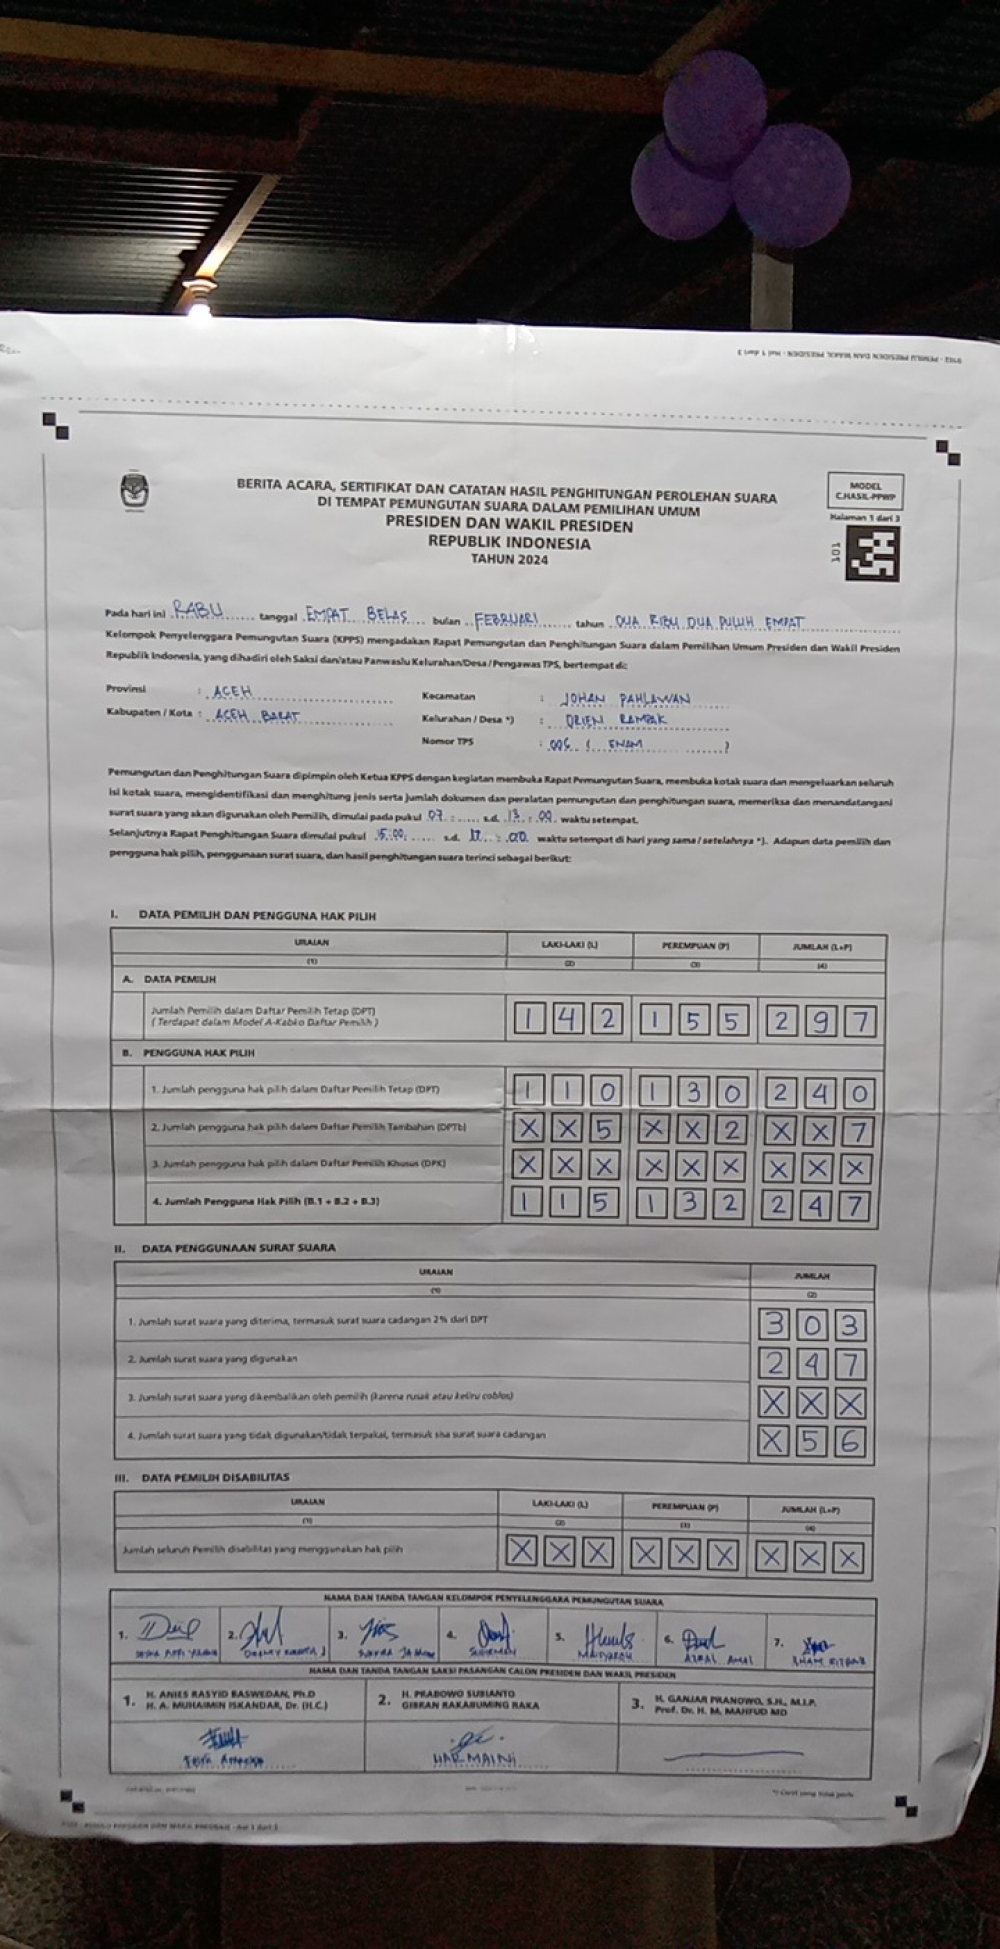 9102 - PEMILU PRESIDEN DAN WAKIL PRESIDEN - Hal 1 dari 3
BERITA ACARA, SERTIFIKAT DAN CATATAN HASIL PENGHITUNGAN PEROLEHAN SUARA
DI TEMPAT PEMUNGUTAN SUARA DALAM PEMILIHAN UMUM
PRESIDEN DAN WAKIL PRESIDEN
REPUBLIK INDONESIA
TAHUN 2024
MODEL
C.HASIL-PPWP
Halaman 1 dari 3
101
Pada hari ini RABU tanggal EMPAT BELAS bulan FEBRUARI tahun DUA RIBU DUA PULUH EMPAT
Kelompok Penyelenggara Pemungutan Suara (KPPS) mengadakan Rapat Pemungutan dan Penghitungan Suara dalam Pemilihan Umum Presiden dan Wakil Presiden
Republik Indonesia, yang dihadiri oleh Saksi dan/atau Panwaslu Kelurahan/Desa / Pengawas TPS, bertempat di:
Provinsi : ACEH Kecamatan : JOHAN PAHLAWAN
Kabupaten / Kota : ACEH BARAT Kelurahan / Desa *) : DRIEN RAMPAK
Nomor TPS : 006 ( ENAM )
Pemungutan dan Penghitungan Suara dipimpin oleh Ketua KPPS dengan kegiatan membuka Rapat Pemungutan Suara, membuka kotak suara dan mengeluarkan seluruh
isi kotak suara, mengidentifikasi dan menghitung jenis serta jumlah dokumen dan peralatan pemungutan dan penghitungan suara, memeriksa dan menandatangani
surat suara yang akan digunakan oleh Pemilih, dimulai pada pukul 07 : ...... s.d. 13 : 00 waktu setempat.
Selanjutnya Rapat Penghitungan Suara dimulai pukul 15:00 s.d. : 00 waktu setempat di hari yang sama / setelahnya *). Adapun data pemilih dan
pengguna hak pilih, penggunaan surat suara, dan hasil penghitungan suara terinci sebagai berikut:
I. DATA PEMILIH DAN PENGGUNA HAK PILIH
URAIAN LAKI-LAKI (L) PEREMPUAN (P) JUMLAH (L+P)
(1) (2) (3) (4)
A. DATA PEMILIH
Jumlah Pemilih dalam Daftar Pemilih Tetap (DPT) 1 4 2 1 5 5 2 9 7
( Terdapat dalam Model A-Kabko Daftar Pemilih )
B. PENGGUNA HAK PILIH
1. Jumlah pengguna hak pilih dalam Daftar Pemilih Tetap (DPT) 1 1 0 1 3 0 2 4 0
2. Jumlah pengguna hak pilih dalam Daftar Pemilih Tambahan (DPTb) X X 5 X X 2 X X 7
3. Jumlah pengguna hak pilih dalam Daftar Pemilih Khusus (DPK) X X X X X X X X X
4. Jumlah Pengguna Hak Pilih (B.1 + B.2 + B.3) 1 1 5 1 3 2 2 4 7
II. DATA PENGGUNAAN SURAT SUARA
URAIAN JUMLAH
(1) (2)
1. Jumlah surat suara yang diterima, termasuk surat suara cadangan 2% dari DPT 3 0 3
2. Jumlah surat suara yang digunakan 2 4 7
3. Jumlah surat suara yang dikembalikan oleh pemilih (karena rusak atau keliru coblos) X X X
4. Jumlah surat suara yang tidak digunakan/tidak terpakai, termasuk sisa surat suara cadangan X 5 6
III. DATA PEMILIH DISABILITAS
URAIAN LAKI-LAKI (L) PEREMPUAN (P) JUMLAH (L+P)
(1) (2) (3) (4)
Jumlah seluruh Pemilih disabilitas yang menggunakan hak pilih X X X X X X X X X
NAMA DAN TANDA TANGAN KELOMPOK PENYELENGGARA PEMUNGUTAN SUARA
1. 2. 3. 4. 5. 6. 7.
MAISYARAH AFZAL AMAL
NAMA DAN TANDA TANGAN SAKSI PASANGAN CALON PRESIDEN DAN WAKIL PRESIDEN
1. H. ANIES RASYID BASWEDAN, Ph.D
H. A. MUHAIMIN ISKANDAR, Dr. (H.C.)
2. H. PRABOWO SUBIANTO
GIBRAN RAKABUMING RAKA
3. H. GANJAR PRANOWO, S.H., M.I.P.
Prof. Dr. H. M. MAHFUD MD
HARMAINI
*) Coret yang tidak perlu
PEMILU PRESIDEN DAN WAKIL PRESIDEN - Hal 1 dari 3